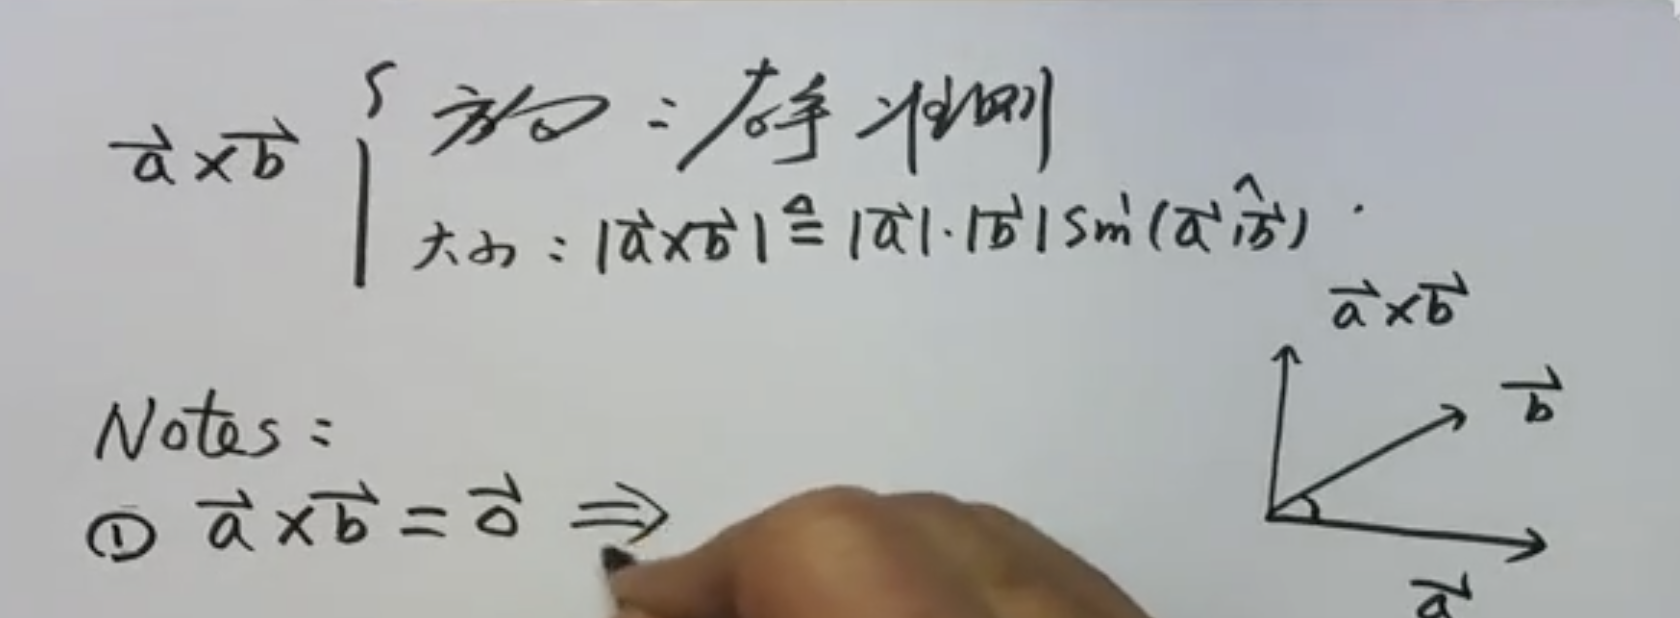 a⃗×b⃗ { 方向:右手准则
大小:|a⃗×b⃗| ≜ |a⃗|·|b⃗| sin(a⃗,^b⃗).
a⃗×b⃗
b⃗
a⃗
Notes:
① a⃗×b⃗=0⃗ ⇒